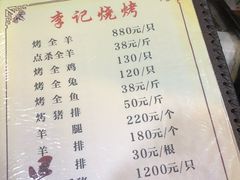 李记烧烤
烤全羊 880元/只
点杀全羊 38元/斤
烤全鸡 130/只
烤全兔 120/只
烤全鱼 38元/斤
烤猪排 50元/斤
羊腿 220元/个
羊排 180元/个
排 30元/根
1200元/只